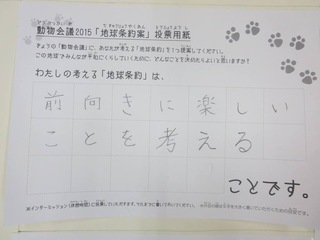 動物会議2015「地球条約案」投票用紙
きょうの「動物会議」に、あなたが考える「地球条約」を1つ提案してください。
この地球でみんなが平和にくらしていくために、どんなことを決めたらよいと思いますか?
わたしの考える「地球条約」は、
前向きに楽しい
ことを考える
ことです。
※インターミッション(休憩時間)に投票していただきます。